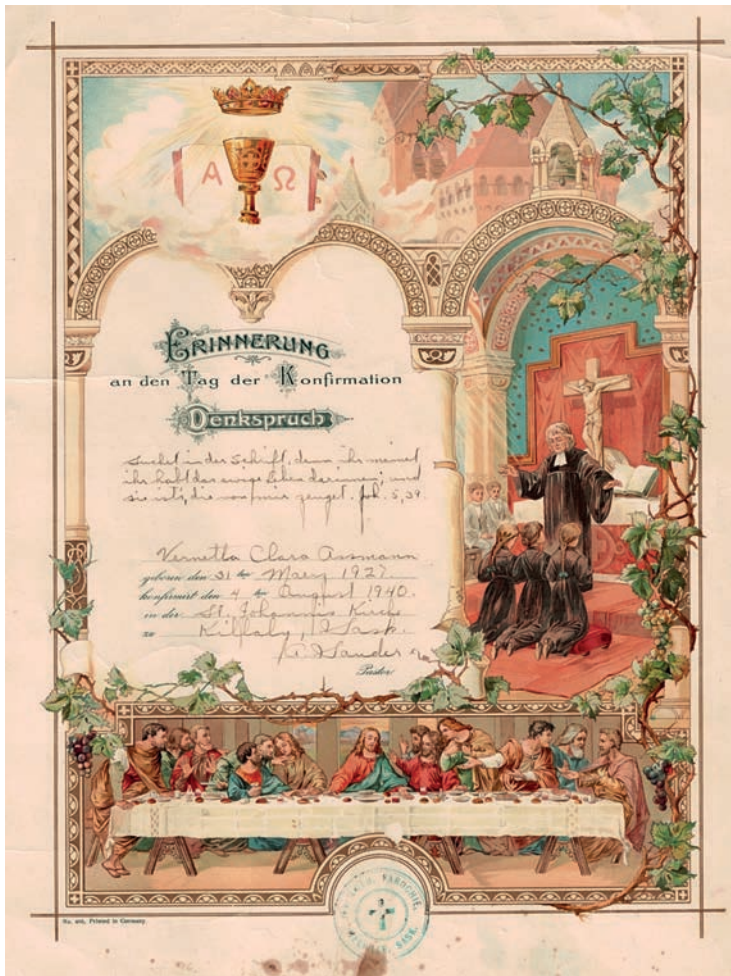 A Ω
ERINNERUNG
an den Tag der Konfirmation
Denkspruch
Suchet in der Schrift, denn ihr meinet
ihr habt das ewige Leben darinnen; und
sie ist's, die von mir zeuget. Joh. 5,39.
Vernetta Clara Assmann
geboren den 31 ten Maerz 1927
konfirmirt den 4 ten August 1940.
in der St. Johannis Kirche
zu Sask.
Pastor
Printed in Germany.
LUTH. PAROCHIE.
SASK.